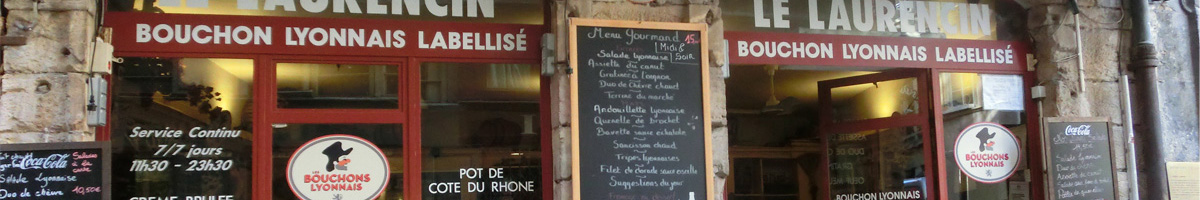 LE LAURENCIN
BOUCHON LYONNAIS LABELLISÉ
Service Continu
7/7 jours
11h30 - 23h30
CREME BRULEE
Coca-Cola
Salade Lyonnaise
Duo de chèvre 10,50€
LES
BOUCHONS
LYONNAIS
POT DE
COTE DU RHONE
Menu Gourmand 15
Midi &
Soir
Salade lyonnaise
Assiette du canut
Gratinée à l'oignon
Duo de chèvre chaud
Terrine du marché
Andouillette Lyonnaise
Quenelle de brochet
Bavette sauce échalote
Saucisson chaud
Tripes lyonnaises
Filet de dorade sauce oseille
Suggestions du jour
LE LAURENCIN
BOUCHON LYONNAIS LABELLISÉ
BOUCHON LYONNAIS
LES
BOUCHONS
LYONNAIS
Coca-Cola